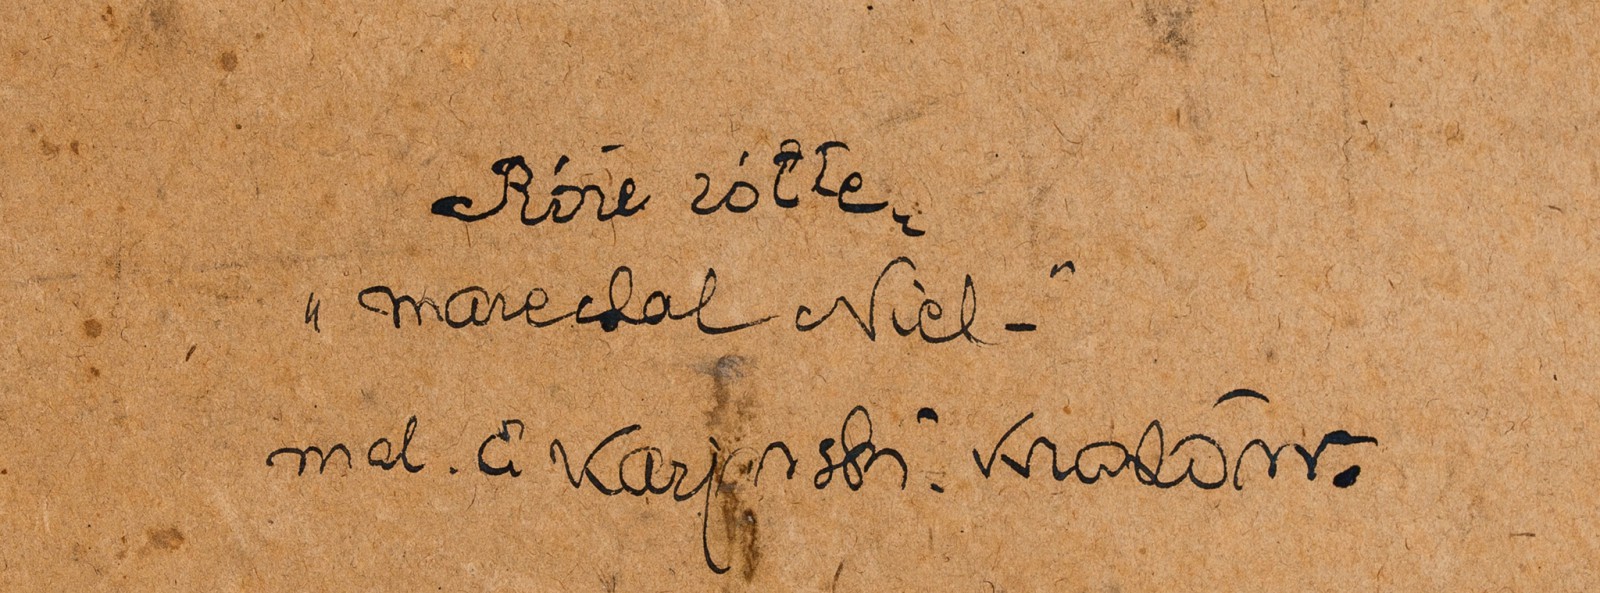 Róże żółte,
"marechal Niel-"
mal. A Karpinski. Kraków.